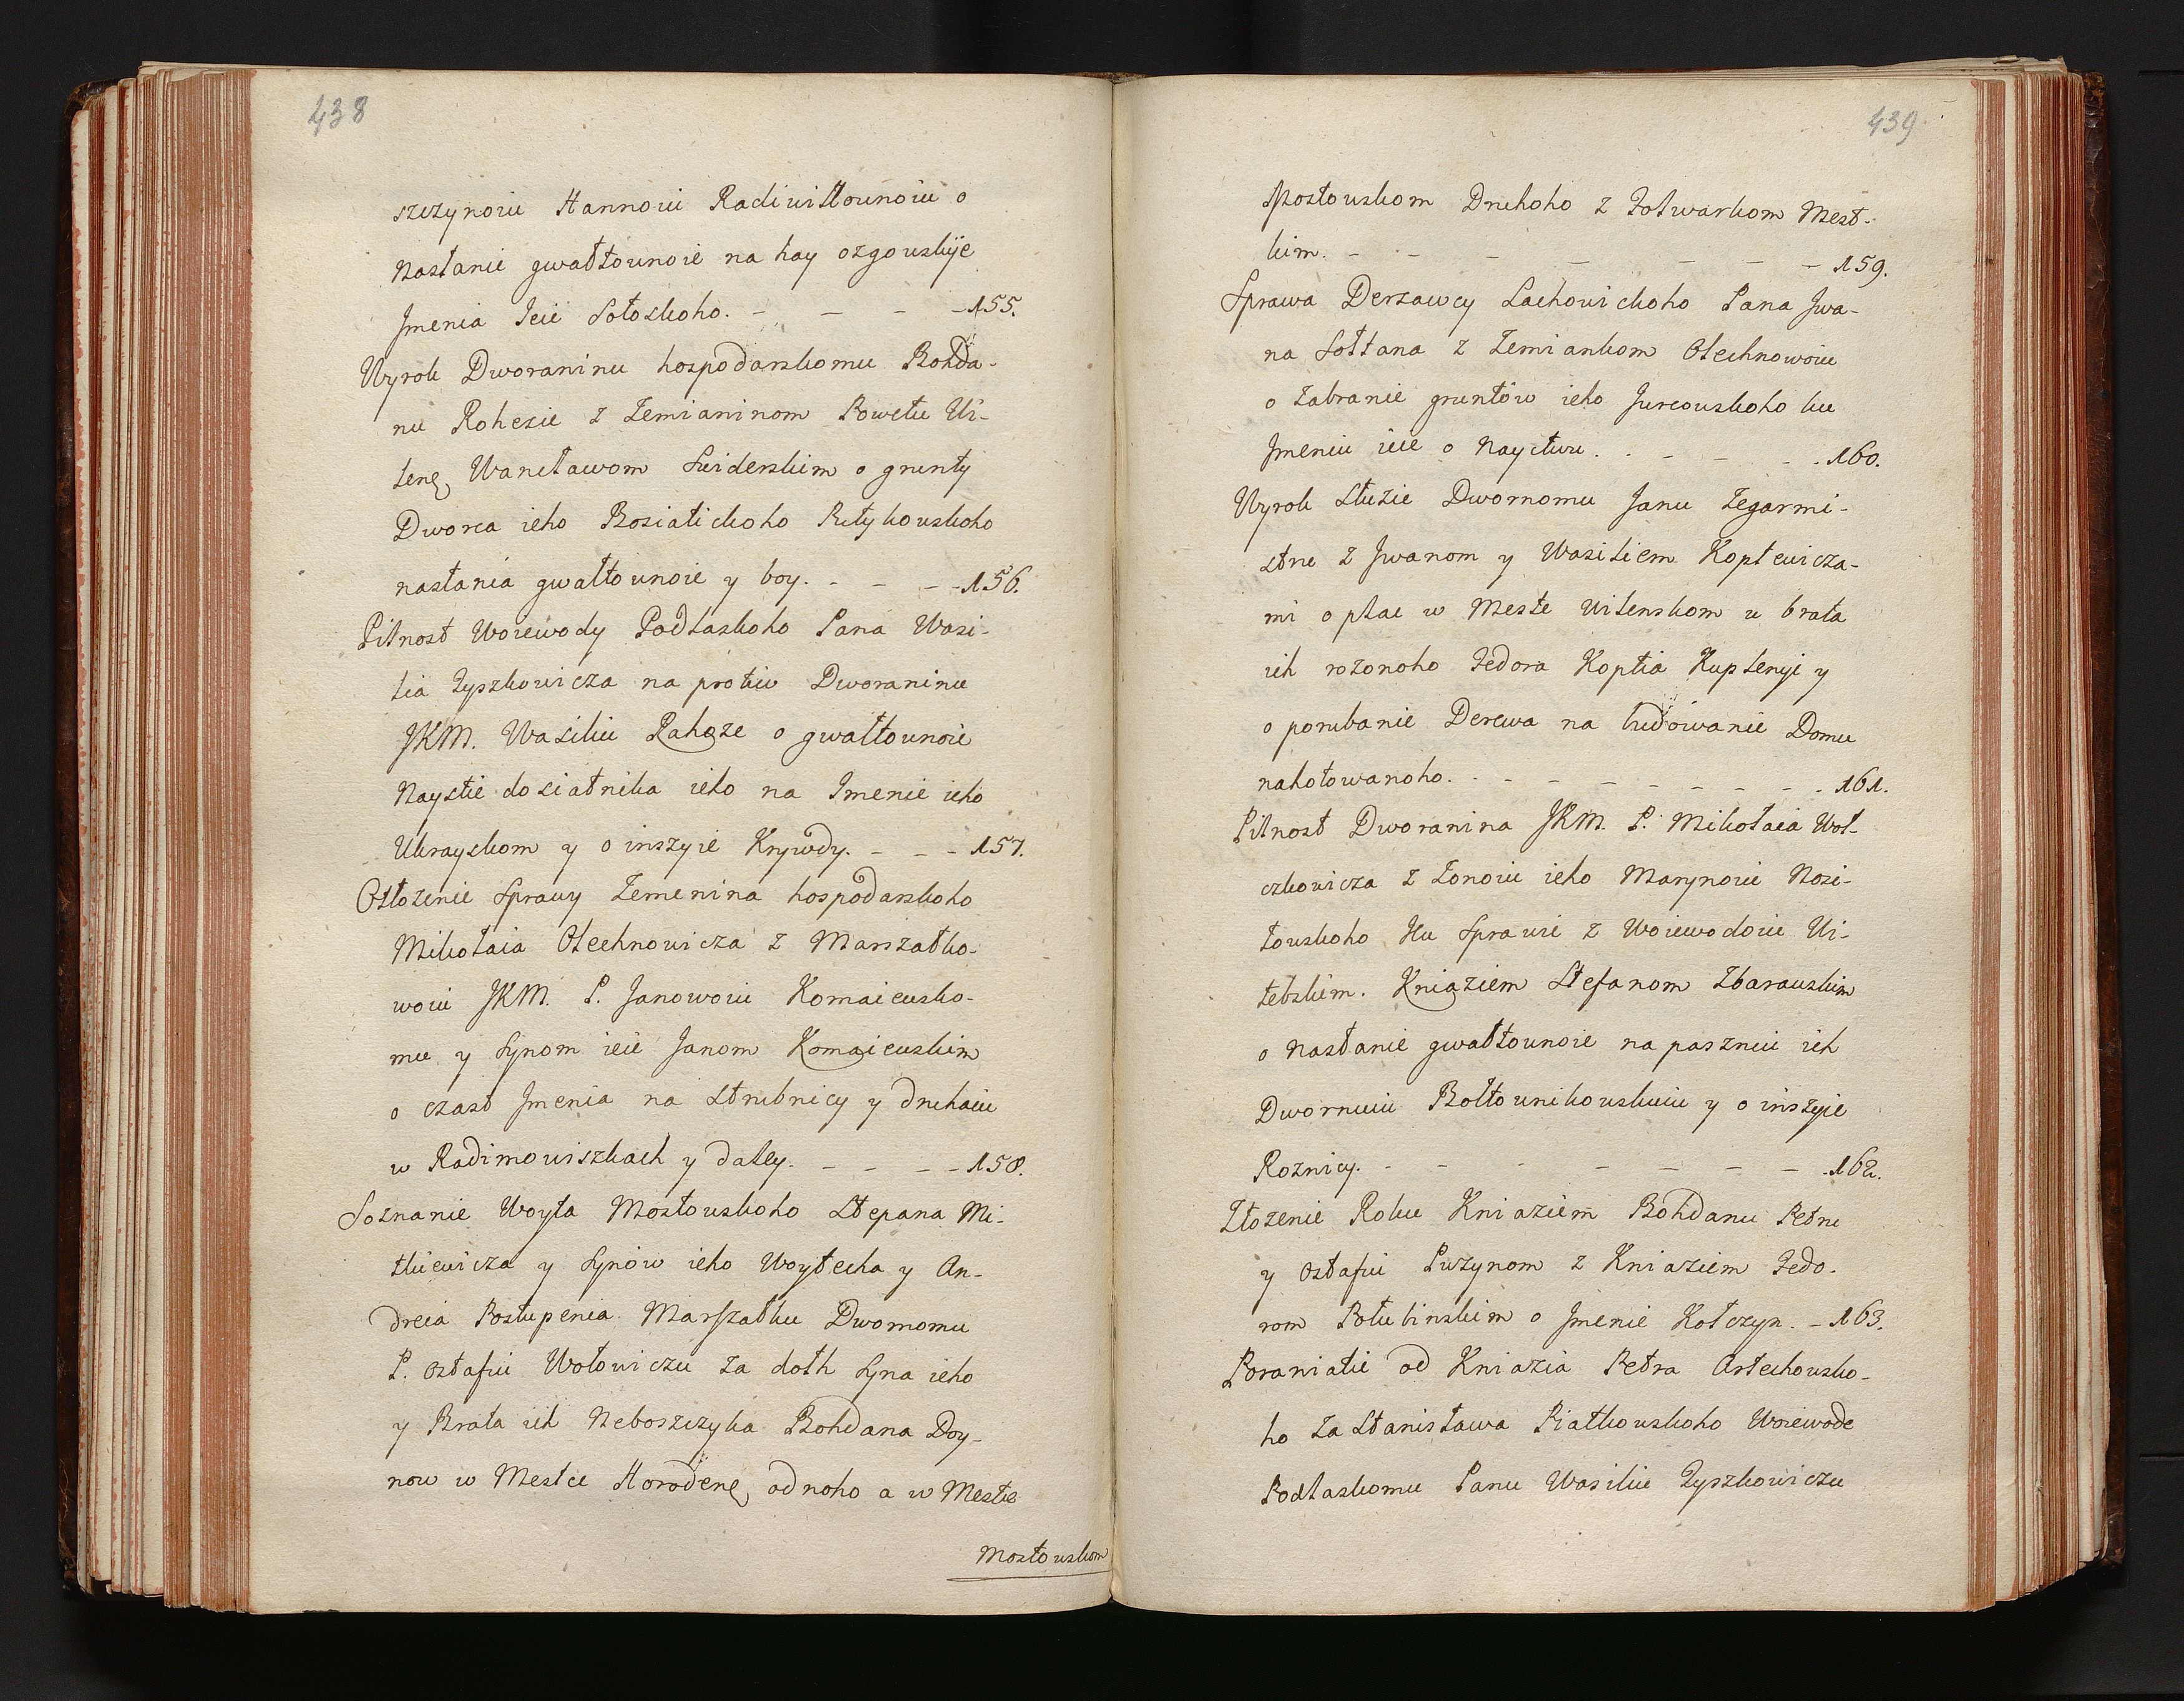 438
szczynoiu Hannoiu Radiwiłłounoiu o
Nasłanie gwałtounoie na hay ozgouskije
Jmenia Ieie Sołoskoho. - - - - 155.
Wyrok Dworaninu hospodarskomu Bohda-
nu Rohezie z Zemianinom Powetu Wi-
leng Wancławom Swiderskim o grunty
Dworca ieho Bosiatickoho Rutykouskoho
nasłania gwałtounoie y boy. - - - - 156.
Pilnost Woiewody Podlaskoho Pana Wasi-
lia Tyszkowicza na protiw Dworaninu
JKM. Wasiliu Rahoze o gwałtounoie
Naystie dosiatnika ieho na Imenie ieho
Ukrayskom y o inszyie Krywdy. - - - 157.
Otłozenie Sprawy Zemenina hospodarskoho
Mikołaia Olechnowicza z Marszałko-
woiu JKM. P. Janowoiu Komaieusko-
mu y Synom ieie Janom Komaieuskim
o czast Jmenia na Strubnicy y druhaiu
w Radimowiszkach y daley. - - - - 158.
Soznanie Woyta Mostouskoho Stepana Mi-
tkiewicza y Synów ieho Woytecha y An-
dreia Postupenia Marszałku Dwornomu
P. Ostafiu Wołowiczu za dołh Syna ieho
y Brata ich Neboszczyka Bohdana Doy-
now w Mestce Horodeng odnoho a w Meste
Mostouskom
439
Mostouskom Druhoho z Folwarkom Mest-
kim. - - - - - - - 159.
Sprawa Derzawcy Lachowickoho Pana Jwa-
na Sołtana z Zemiankom Olechnowoiu
o Zabranie gruntów ieho Jurcouskoho ku
Jmeniu ieie o Nayctwu. - - - - - 160.
Wyrok Słuzie Dwornomu Janu Zegarmi-
stru z Jwanom y Wasiliem Koptewicza-
mi o płac w Meste Wilenskom u brata
ich rozonoho Fedora Koptia Kuplenyi y
o porubanie Derewa na budowanie Domu
nahotowanoho. - - - - - - - - 161.
Pilnost Dworanina JKM. P. Mikołaia Woł-
czkowicza z Zonoiu ieho Marynoiu Nosi-
łouskoho Ku Sprawie z Woiewodoiu Wi-
tebskim. Kniaziem Stefanom Zbarauskim
o Nasłanie gwałtounoie na paszniu ich
Dwornuiu Bołtounikouskuiu y o inszyie
Roznicy. - - - - - - - - 162.
Złozenie Roku Kniaziem Bohdanu Petru
y Ostafiu Puzynom z Kniaziem Fedo-
rom Bołubinskim o Jmenie Kołczyn. - 163.
Poraniatie od Kniazia Petra Ostechousko-
ho za Stanisława Piatkouskoho Woiewode
Podlaskomu Panu Wasiliu Tyszkowiczu